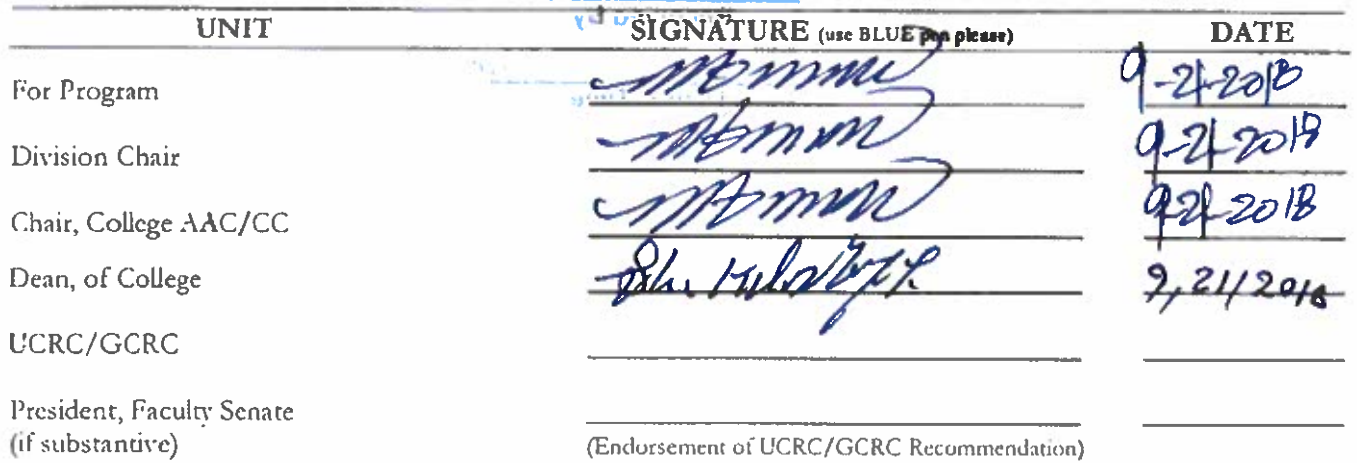 UNIT SIGNATURE (use BLUE pen please) DATE
For Program 9-21-2018
Division Chair 9-21-2018
Chair, College AAC/CC 9-21-2018
Dean, of College 9,21/2018
UCRC/GCRC
President, Faculty Senate
(if substantive) (Endorsement of UCRC/GCRC Recommendation)